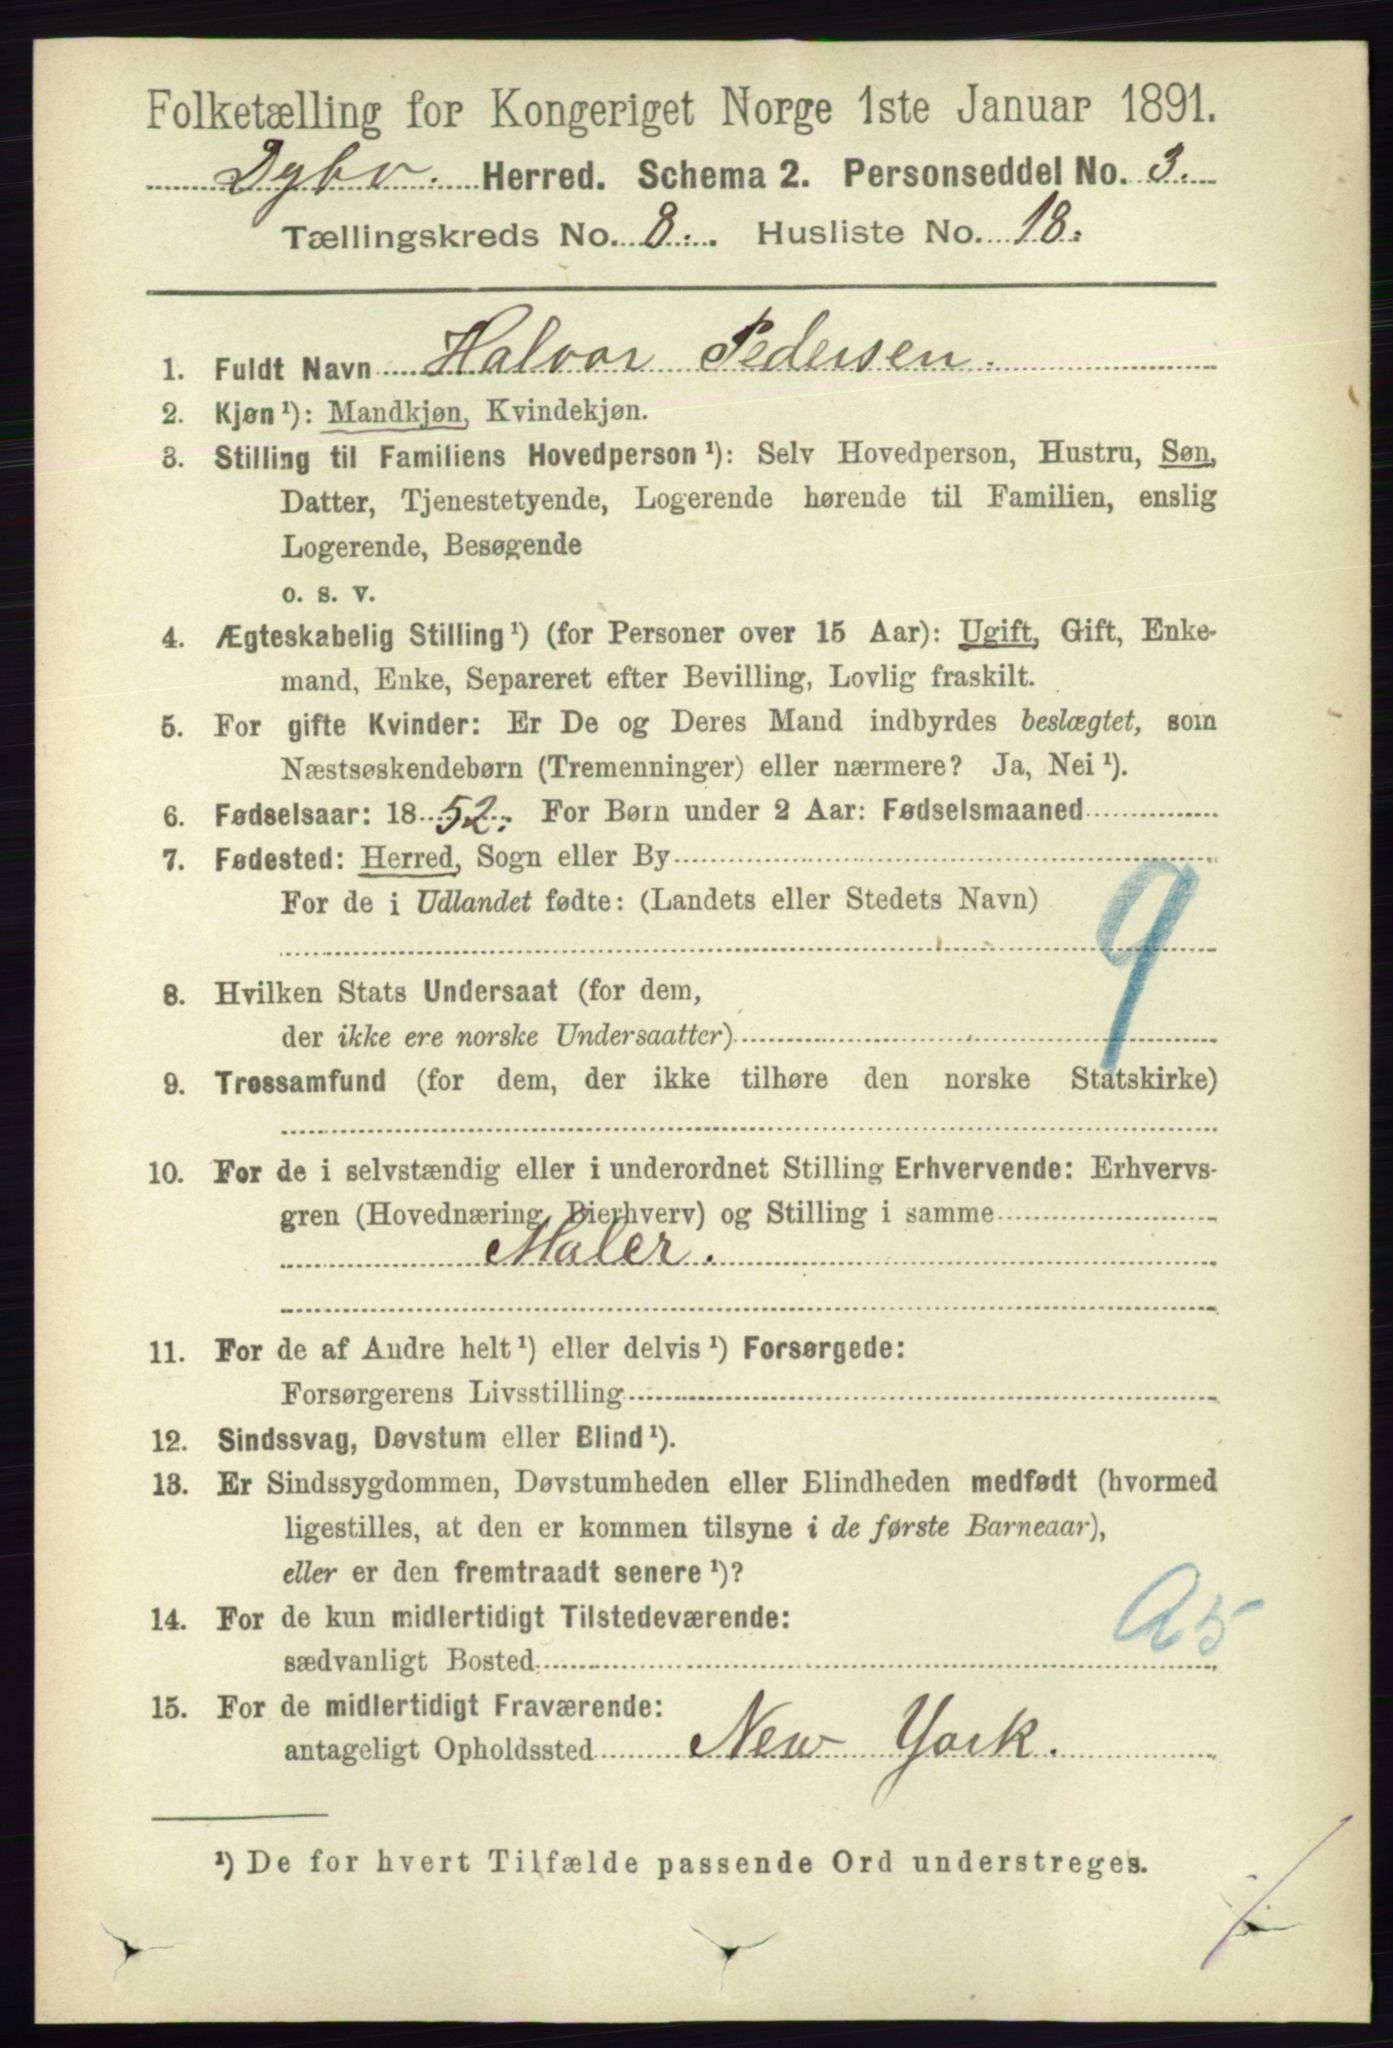 Folketælling for Kongeriget Norge 1ste Januar 1891.
Dybv. Herred. Schema 2. Personseddel No. 3.
Tællingskreds No. 8. Husliste No. 18.
1. Fuldt Navn Halvor Pedersen.
2. Kjøn¹): Mandkjøn, Kvindekjøn.
3. Stilling til Familiens Hovedperson¹): Selv Hovedperson, Hustru, Søn,
Datter, Tjenestetyende, Logerende hørende til Familien, enslig
Logerende, Besøgende
o. s. v.
4. Ægteskabelig Stilling¹) (for Personer over 15 Aar): Ugift, Gift, Enke-
mand, Enke, Separeret efter Bevilling, Lovlig fraskilt.
5. For gifte Kvinder: Er De og Deres Mand indbyrdes beslægtet, som
Næstsøskendebørn (Tremenninger) eller nærmere? Ja, Nei¹).
6. Fødselsaar: 1852. For Børn under 2 Aar: Fødselsmaaned
7. Fødested: Herred, Sogn eller By
For de i Udlandet fødte: (Landets eller Stedets Navn)
9
8. Hvilken Stats Undersaat (for dem,
der ikke ere norske Undersaatter)
9. Trossamfund (for dem, der ikke tilhøre den norske Statskirke)
10. For de i selvstændig eller i underordnet Stilling Erhvervende: Erhvervs-
gren (Hovednæring, Bierhverv) og Stilling i samme
Maler.
11. For de af Andre helt¹) eller delvis¹) Forsørgede:
Forsørgerens Livsstilling
12. Sindssvag, Døvstum eller Blind¹).
13. Er Sindssygdommen, Døvstumheden eller Blindheden medfødt (hvormed
ligestilles, at den er kommen tilsyne i de første Barneaar),
eller er den fremtraadt senere¹)?
14. For de kun midlertidigt Tilstedeværende:
sædvanligt Bosted
A5
15. For de midlertidigt Fraværende:
antageligt Opholdssted New York.
¹) De for hvert Tilfælde passende Ord understreges.